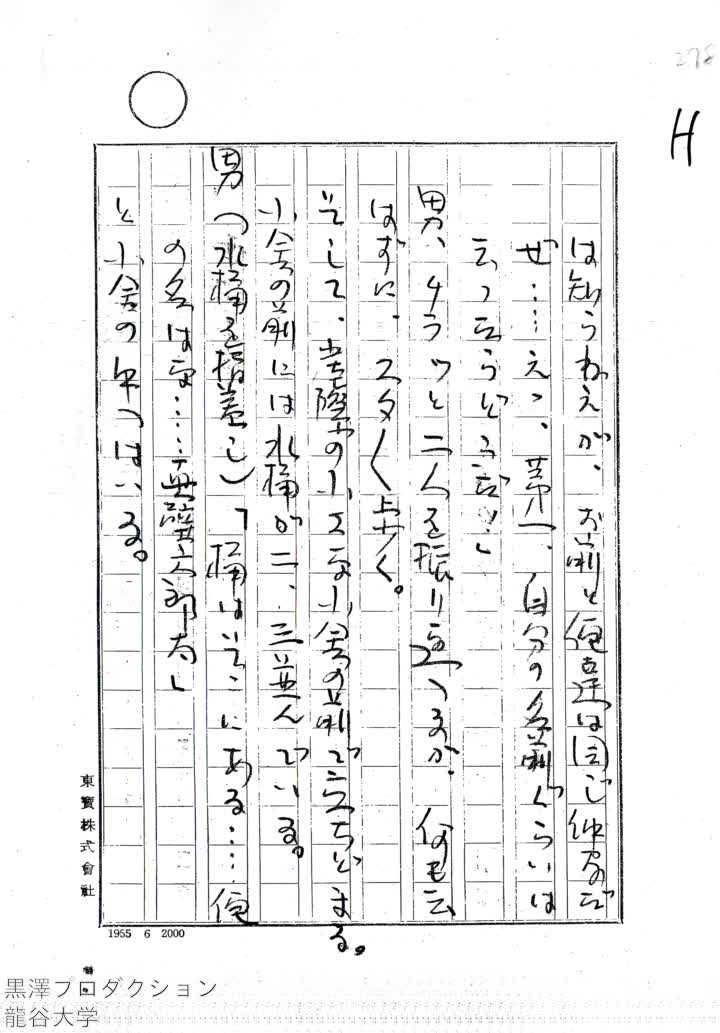 278
H
は知らねえが、お前と俺達は同じ仲間だ
ぜ……えっ、第一、自分の名前ぐらいは
云ったらどうだ!」
男、チラッと二人を振り返へるが、何も云
はずに、スタ〱歩く。
そして、岩蔭の小さな小舎の前で立ちどまる。
小舎の前には水桶が二、三並んでいる。
男(水桶を指差し)「桶はそこにある……俺
の名はな……真壁六郎太」
と小舎の中へはいる。
東寶株式會社
1955 6 2000
黒澤プロダクション
龍谷大学